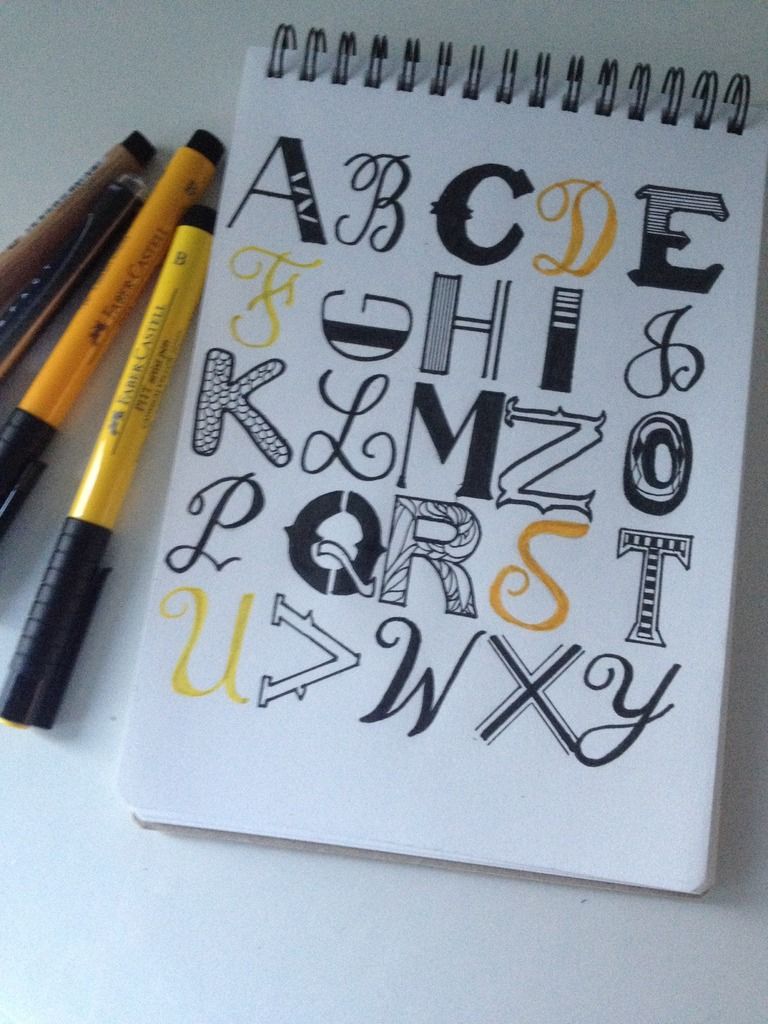 A B C D E
F G H I J
K L M N O
P Q R S T
U V W X Y
FABER-CASTELL
B
FABER-CASTELL
PITT artist pen